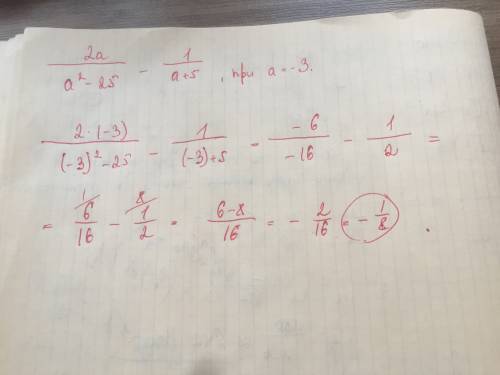 2a/(a² - 25) - 1/(a+5) , при a = -3.
2·(-3)/((-3)² - 25) - 1/((-3)+5) = -6/-16 - 1/2 =
= 6/16 ^1 - 1/2 ^8 = (6-8)/16 = - 2/16 = - 1/8 .